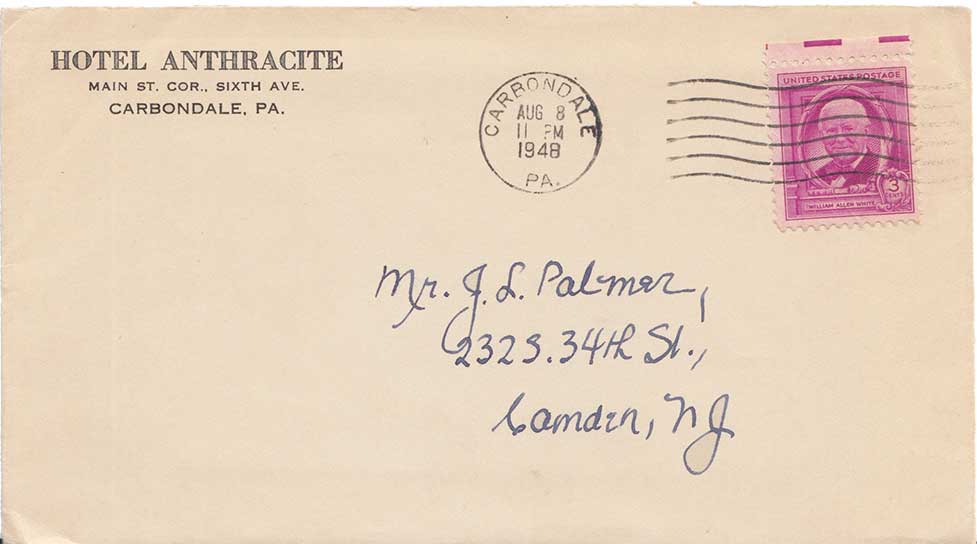 HOTEL ANTHRACITE
MAIN ST. COR., SIXTH AVE.
CARBONDALE, PA.
CARBONDALE
AUG 8
11 PM
1948
PA.
UNITED STATES POSTAGE
3
CENTS
WILLIAM ALLEN WHITE
Mr. J. L. Palmer,
232 S. 34th St.,
Camden, NJ